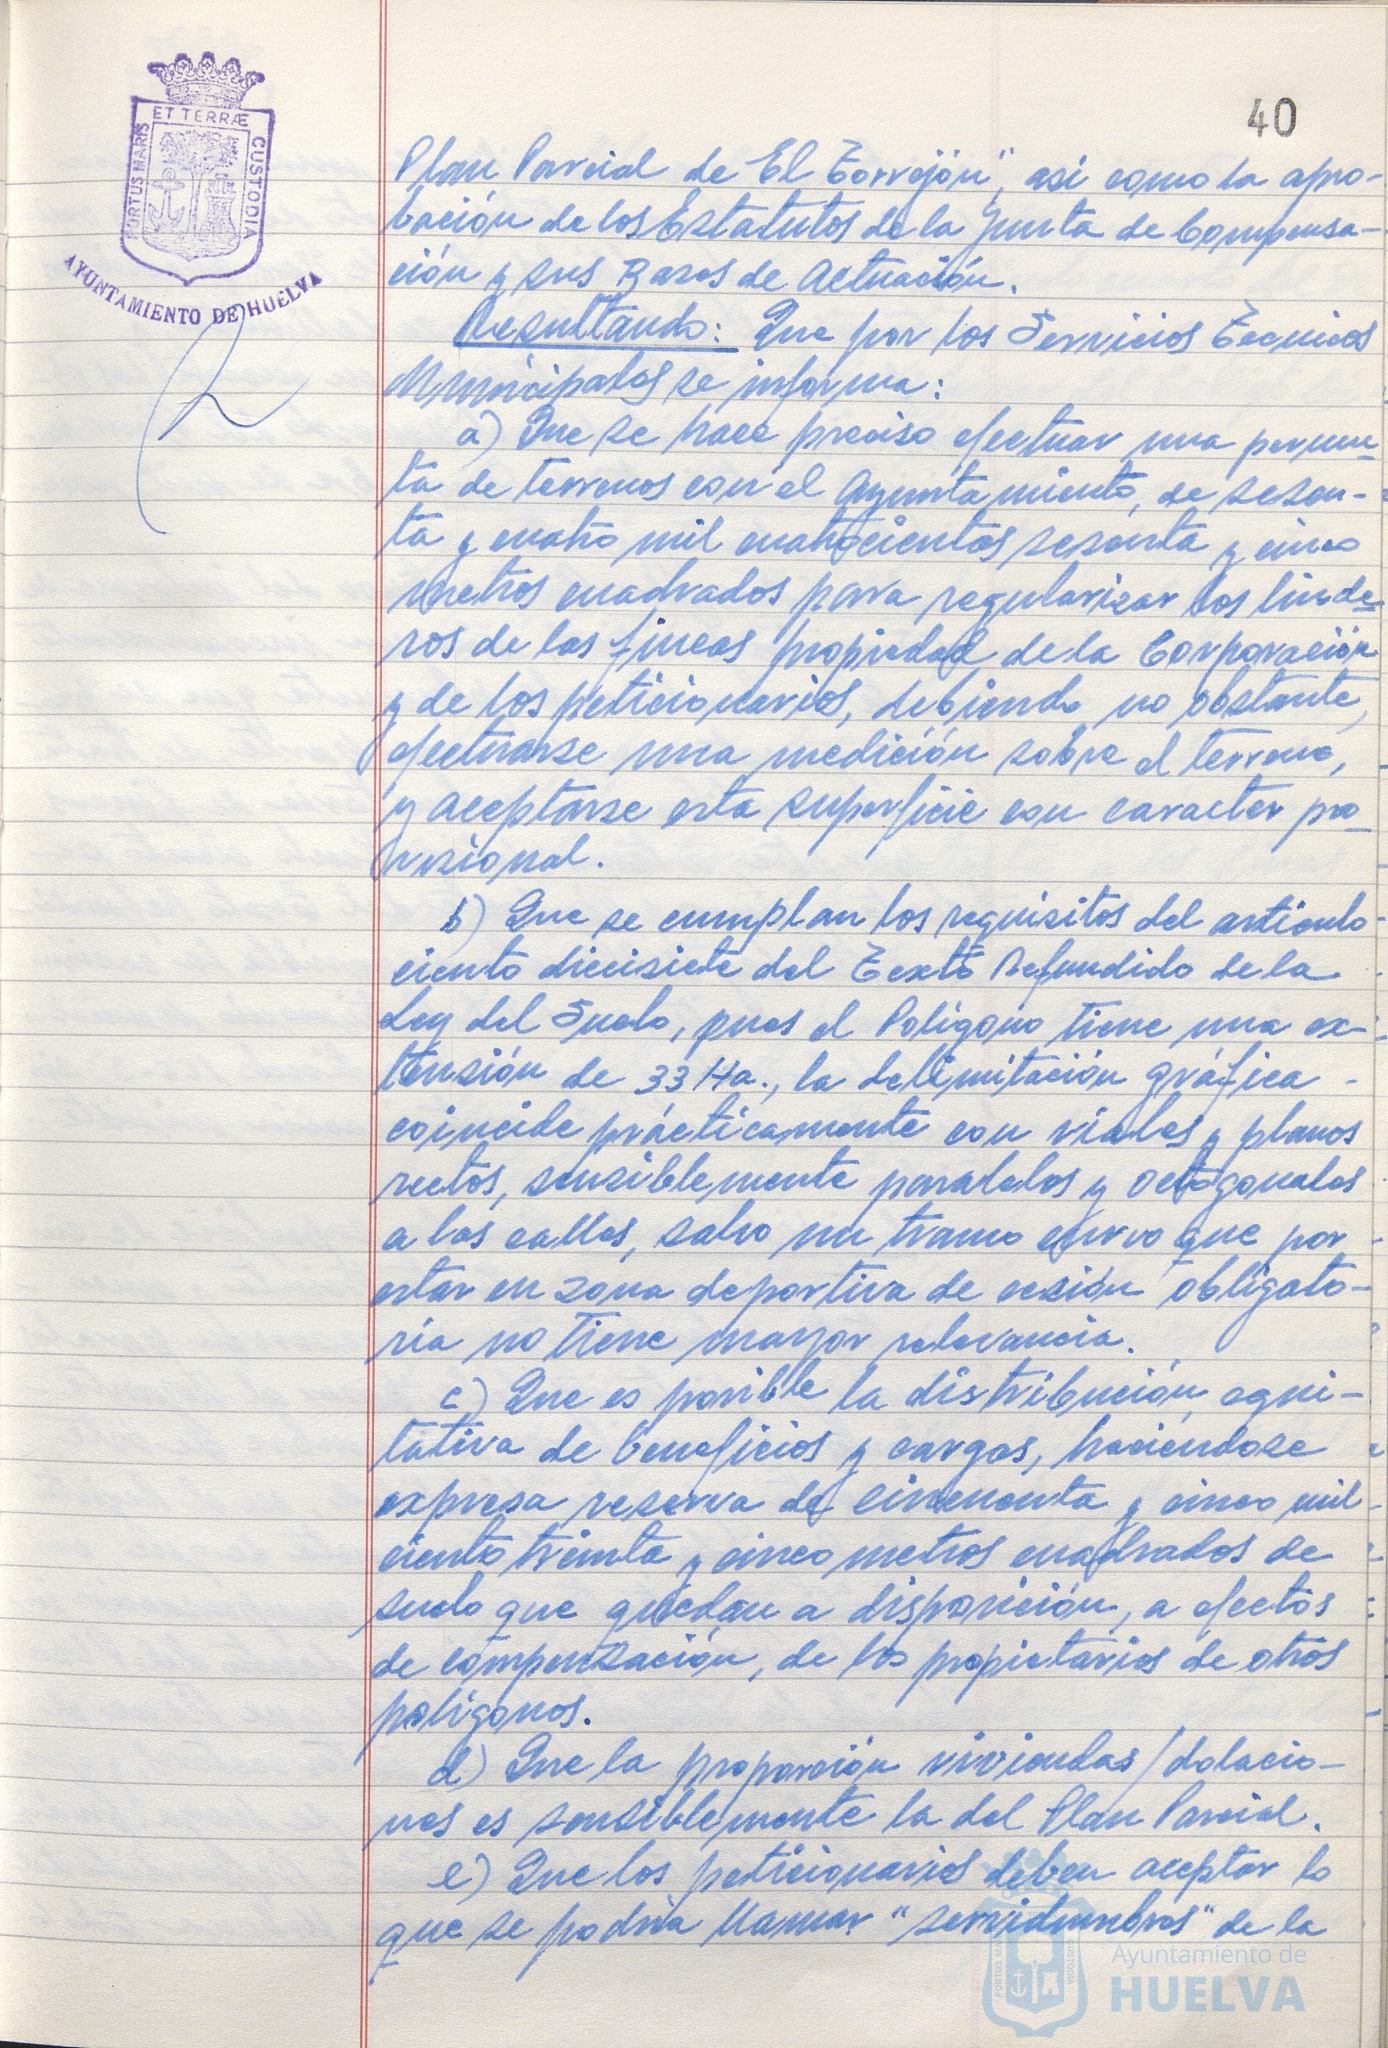 40
ET TERRÆ
PORTUS MARIS
CUSTODIA
AYUNTAMIENTO DE HUELVA
Plan Parcial de El Torrejón", asi como la apro-
bación de los Estatutos de la Junta de Compensa-
ción y sus Bases de Actuación.
Resultando: Que por los Servicios Técnicos
Municipales se informa:
a) Que se hace preciso efectuar una permu-
ta de terrenos con el Ayuntamiento, de sesen-
ta y cuatro mil cuatrocientos sesenta y cinco
metros cuadrados para regularizar los linde-
ros de las fincas propiedad de la Corporación
y de los peticionarios, debiendo no obstante,
efectuarse una medición sobre el terreno,
y aceptarse esta superficie con caracter pro-
visional.
b) Que se cumplan los requisitos del articulo
ciento diecisiete del Texto Refundido de la
Ley del Suelo, pues el Poligono tiene una ex-
tensión de 33 Ha., la delimitación gráfica -
coincide prácticamente con viales y planos
rectos, sensiblemente paralelos y octogonales
a las calles, salvo un tramo curvo que por
estar en zona deportiva de cesión obligato-
ria no tiene mayor relevancia.
c) Que es posible la distribución equi-
tativa de beneficios y cargas, haciendose
expresa reserva de cincuenta y cinco mil
ciento treinta y cinco metros cuadrados de
suelo que quedan a disposición, a efectos
de compensación, de los propietarios de otros
polígonos.
d) Que la proporción viviendas/dotacio-
nes es sensiblemente la del Plan Parcial.
e) Que los peticionarios deben aceptar lo
que se podria llamar "servidumbres" de la
Ayuntamiento de
HUELVA